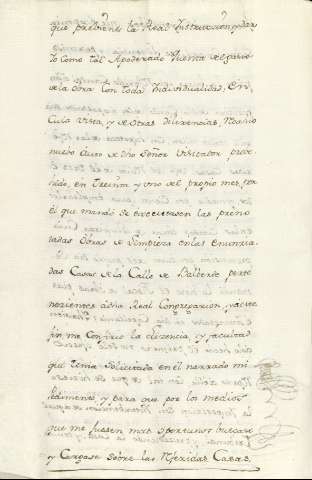 que previene la Real Instruccion, y dar
lo como tal Apoderado Quenta del gasto
de la obra con toda Individualidad, En
Cuia Vista, y de otras diligencias, Recaio
nuevo Auto de dho Señor Visitador pror
en Treinta y uno del propio mes, por
el que mando se executasen las preno
tadas Obras de Limpiera en las enuncia
das Casas de la Calle de Valverde perte
necientes a dha Real Congregacion, y a este
fin, me confirio la licencia, y facultad
que tenia solicitada en el narrado mi
Pedimento y para que por los medios
que me fuesen mas oportunos buscase
y Cargase sobre las Referidas Casas,